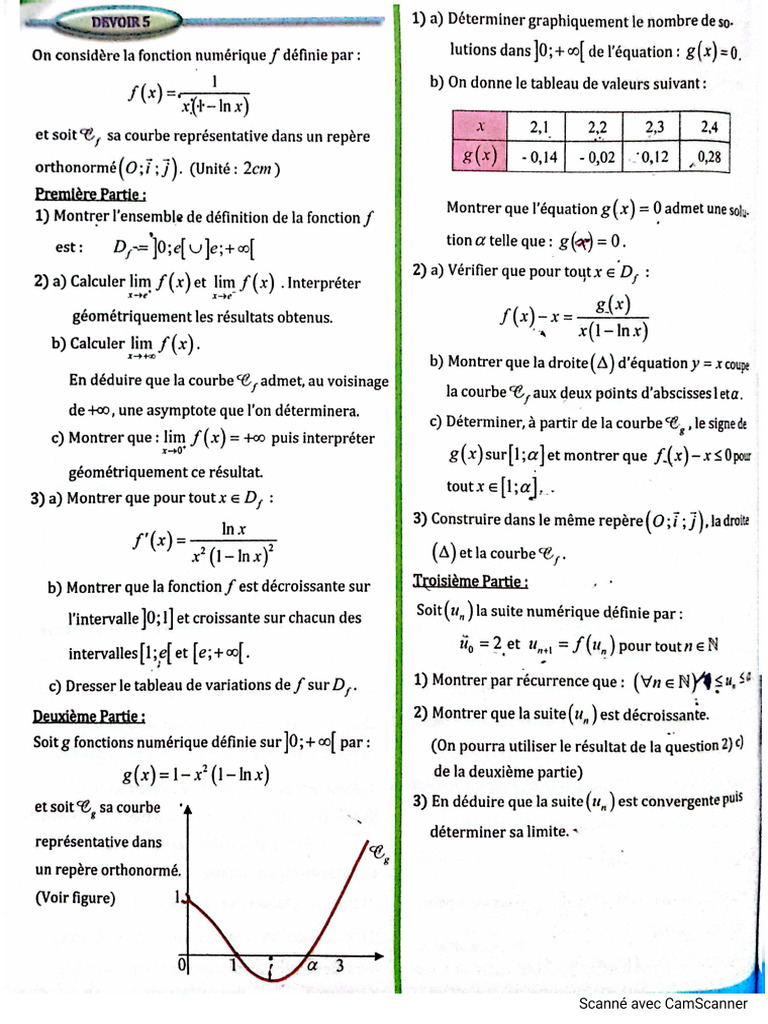 DEVOIR 5
On considère la fonction numérique f définie par :
f(x) = 1 / x(1 − ln x)
et soit 𝒞f sa courbe représentative dans un repère
orthonormé (O; i⃗; j⃗). (Unité : 2cm)
Première Partie :
1) Montrer l'ensemble de définition de la fonction f
est : Df = ]0; e[ ∪ ]e; +∞[
2) a) Calculer lim x→e⁺ f(x) et lim x→e⁻ f(x). Interpréter
géométriquement les résultats obtenus.
b) Calculer lim x→+∞ f(x).
En déduire que la courbe 𝒞f admet, au voisinage
de +∞, une asymptote que l'on déterminera.
c) Montrer que : lim x→0⁺ f(x) = +∞ puis interpréter
géométriquement ce résultat.
3) a) Montrer que pour tout x ∈ Df :
f'(x) = ln x / x²(1 − ln x)²
b) Montrer que la fonction f est décroissante sur
l'intervalle ]0;1] et croissante sur chacun des
intervalles [1;e[ et [e;+∞[.
c) Dresser le tableau de variations de f sur Df.
Deuxième Partie :
Soit g fonctions numérique définie sur ]0;+∞[ par :
g(x) = 1 − x²(1 − ln x)
et soit 𝒞g sa courbe
représentative dans
un repère orthonormé.
(Voir figure)
𝒞g
1
0 1 i α 3
1) a) Déterminer graphiquement le nombre de so-
lutions dans ]0;+∞[ de l'équation : g(x) = 0.
b) On donne le tableau de valeurs suivant :
x 2,1 2,2 2,3 2,4
g(x) - 0,14 - 0,02 0,12 0,28
Montrer que l'équation g(x) = 0 admet une solu-
tion α telle que : g(α) = 0.
2) a) Vérifier que pour tout x ∈ Df :
f(x) − x = g(x) / x(1 − ln x)
b) Montrer que la droite (Δ) d'équation y = x coupe
la courbe 𝒞f aux deux points d'abscisses 1 et α.
c) Déterminer, à partir de la courbe 𝒞g, le signe de
g(x) sur [1;α] et montrer que f(x) − x ≤ 0 pour
tout x ∈ [1;α].
3) Construire dans le même repère (O; i⃗; j⃗), la droite
(Δ) et la courbe 𝒞f.
Troisième Partie :
Soit (un) la suite numérique définie par :
u0 = 2 et un+1 = f(un) pour tout n ∈ ℕ
1) Montrer par récurrence que : (∀n ∈ ℕ) 1 ≤ un ≤ α
2) Montrer que la suite (un) est décroissante.
(On pourra utiliser le résultat de la question 2) c)
de la deuxième partie)
3) En déduire que la suite (un) est convergente puis
déterminer sa limite.
Scanné avec CamScanner